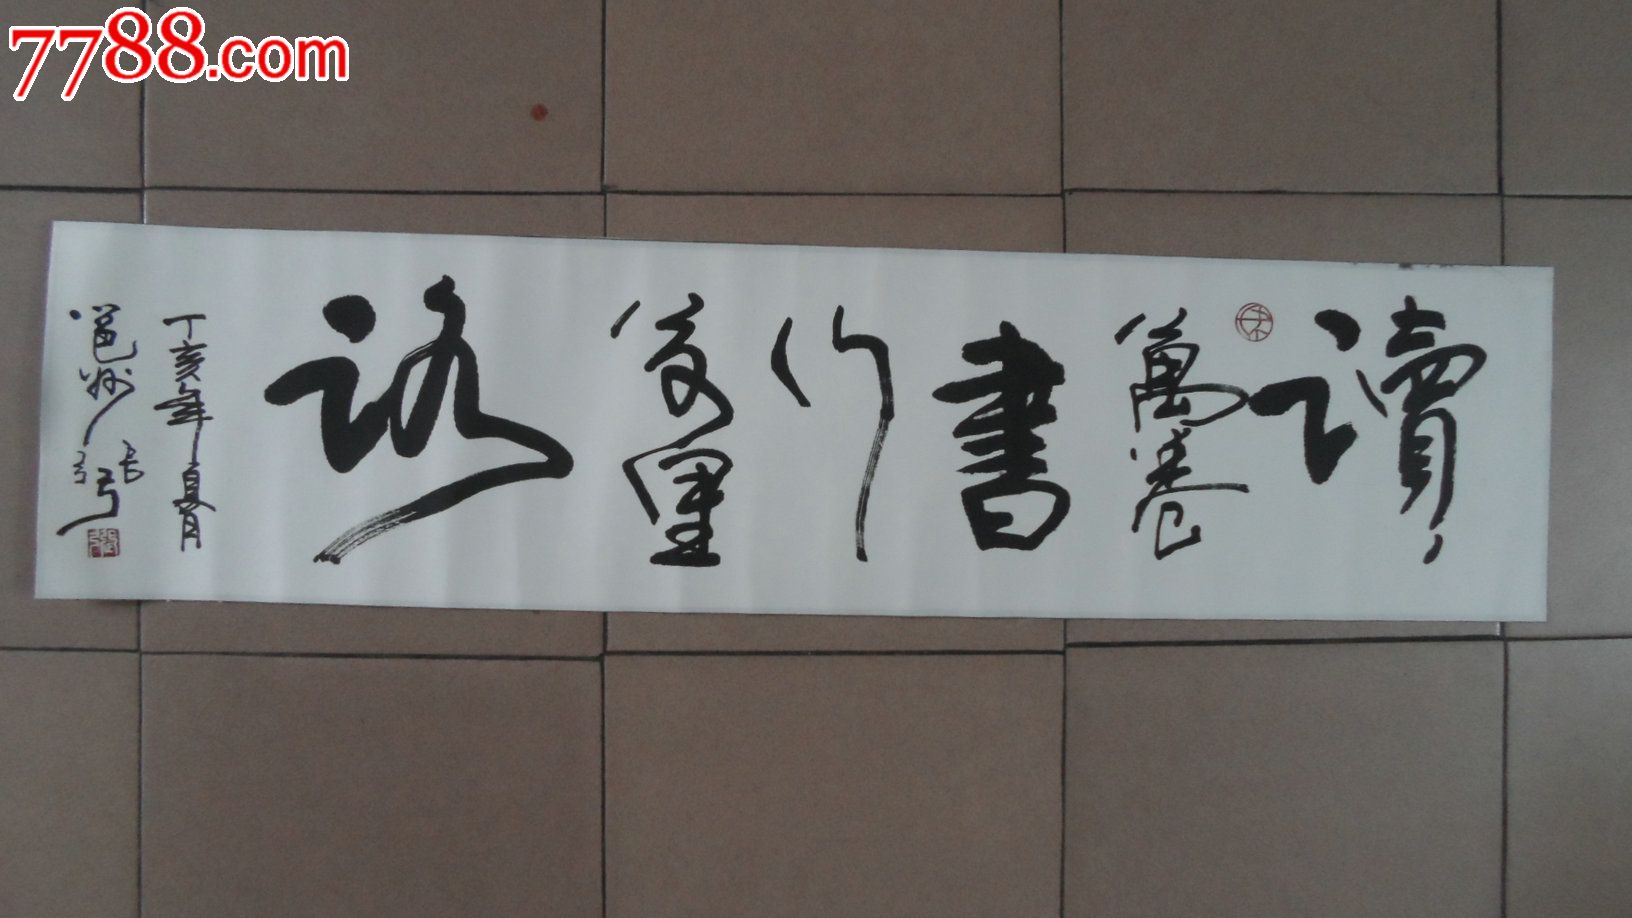 7788.com
讀萬卷書行萬里路
丁亥年夏月
邕州